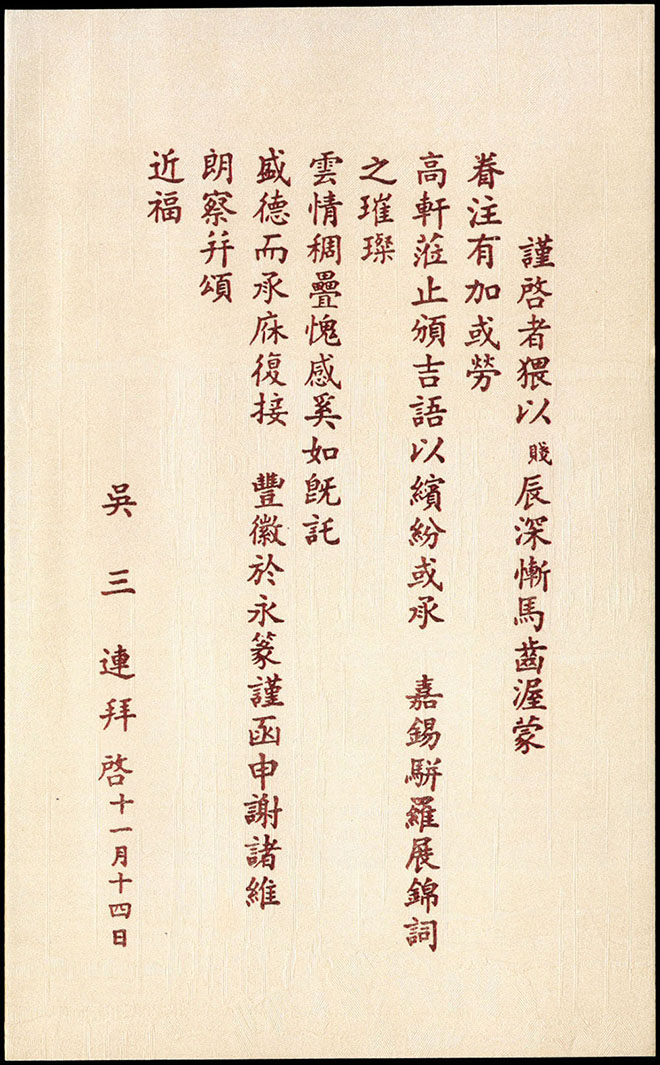 謹啓者猥以賤辰深慚馬齒渥蒙
眷注有加或勞
高軒蒞止頒吉語以繽紛或承　嘉錫駢羅展錦詞
之璀璨
雲情稠疊愧感奚如既託
盛德而承庥復接　豐徽於永篆謹函申謝諸維
朗察幷頌
近福
吳三連拜啓十一月十四日